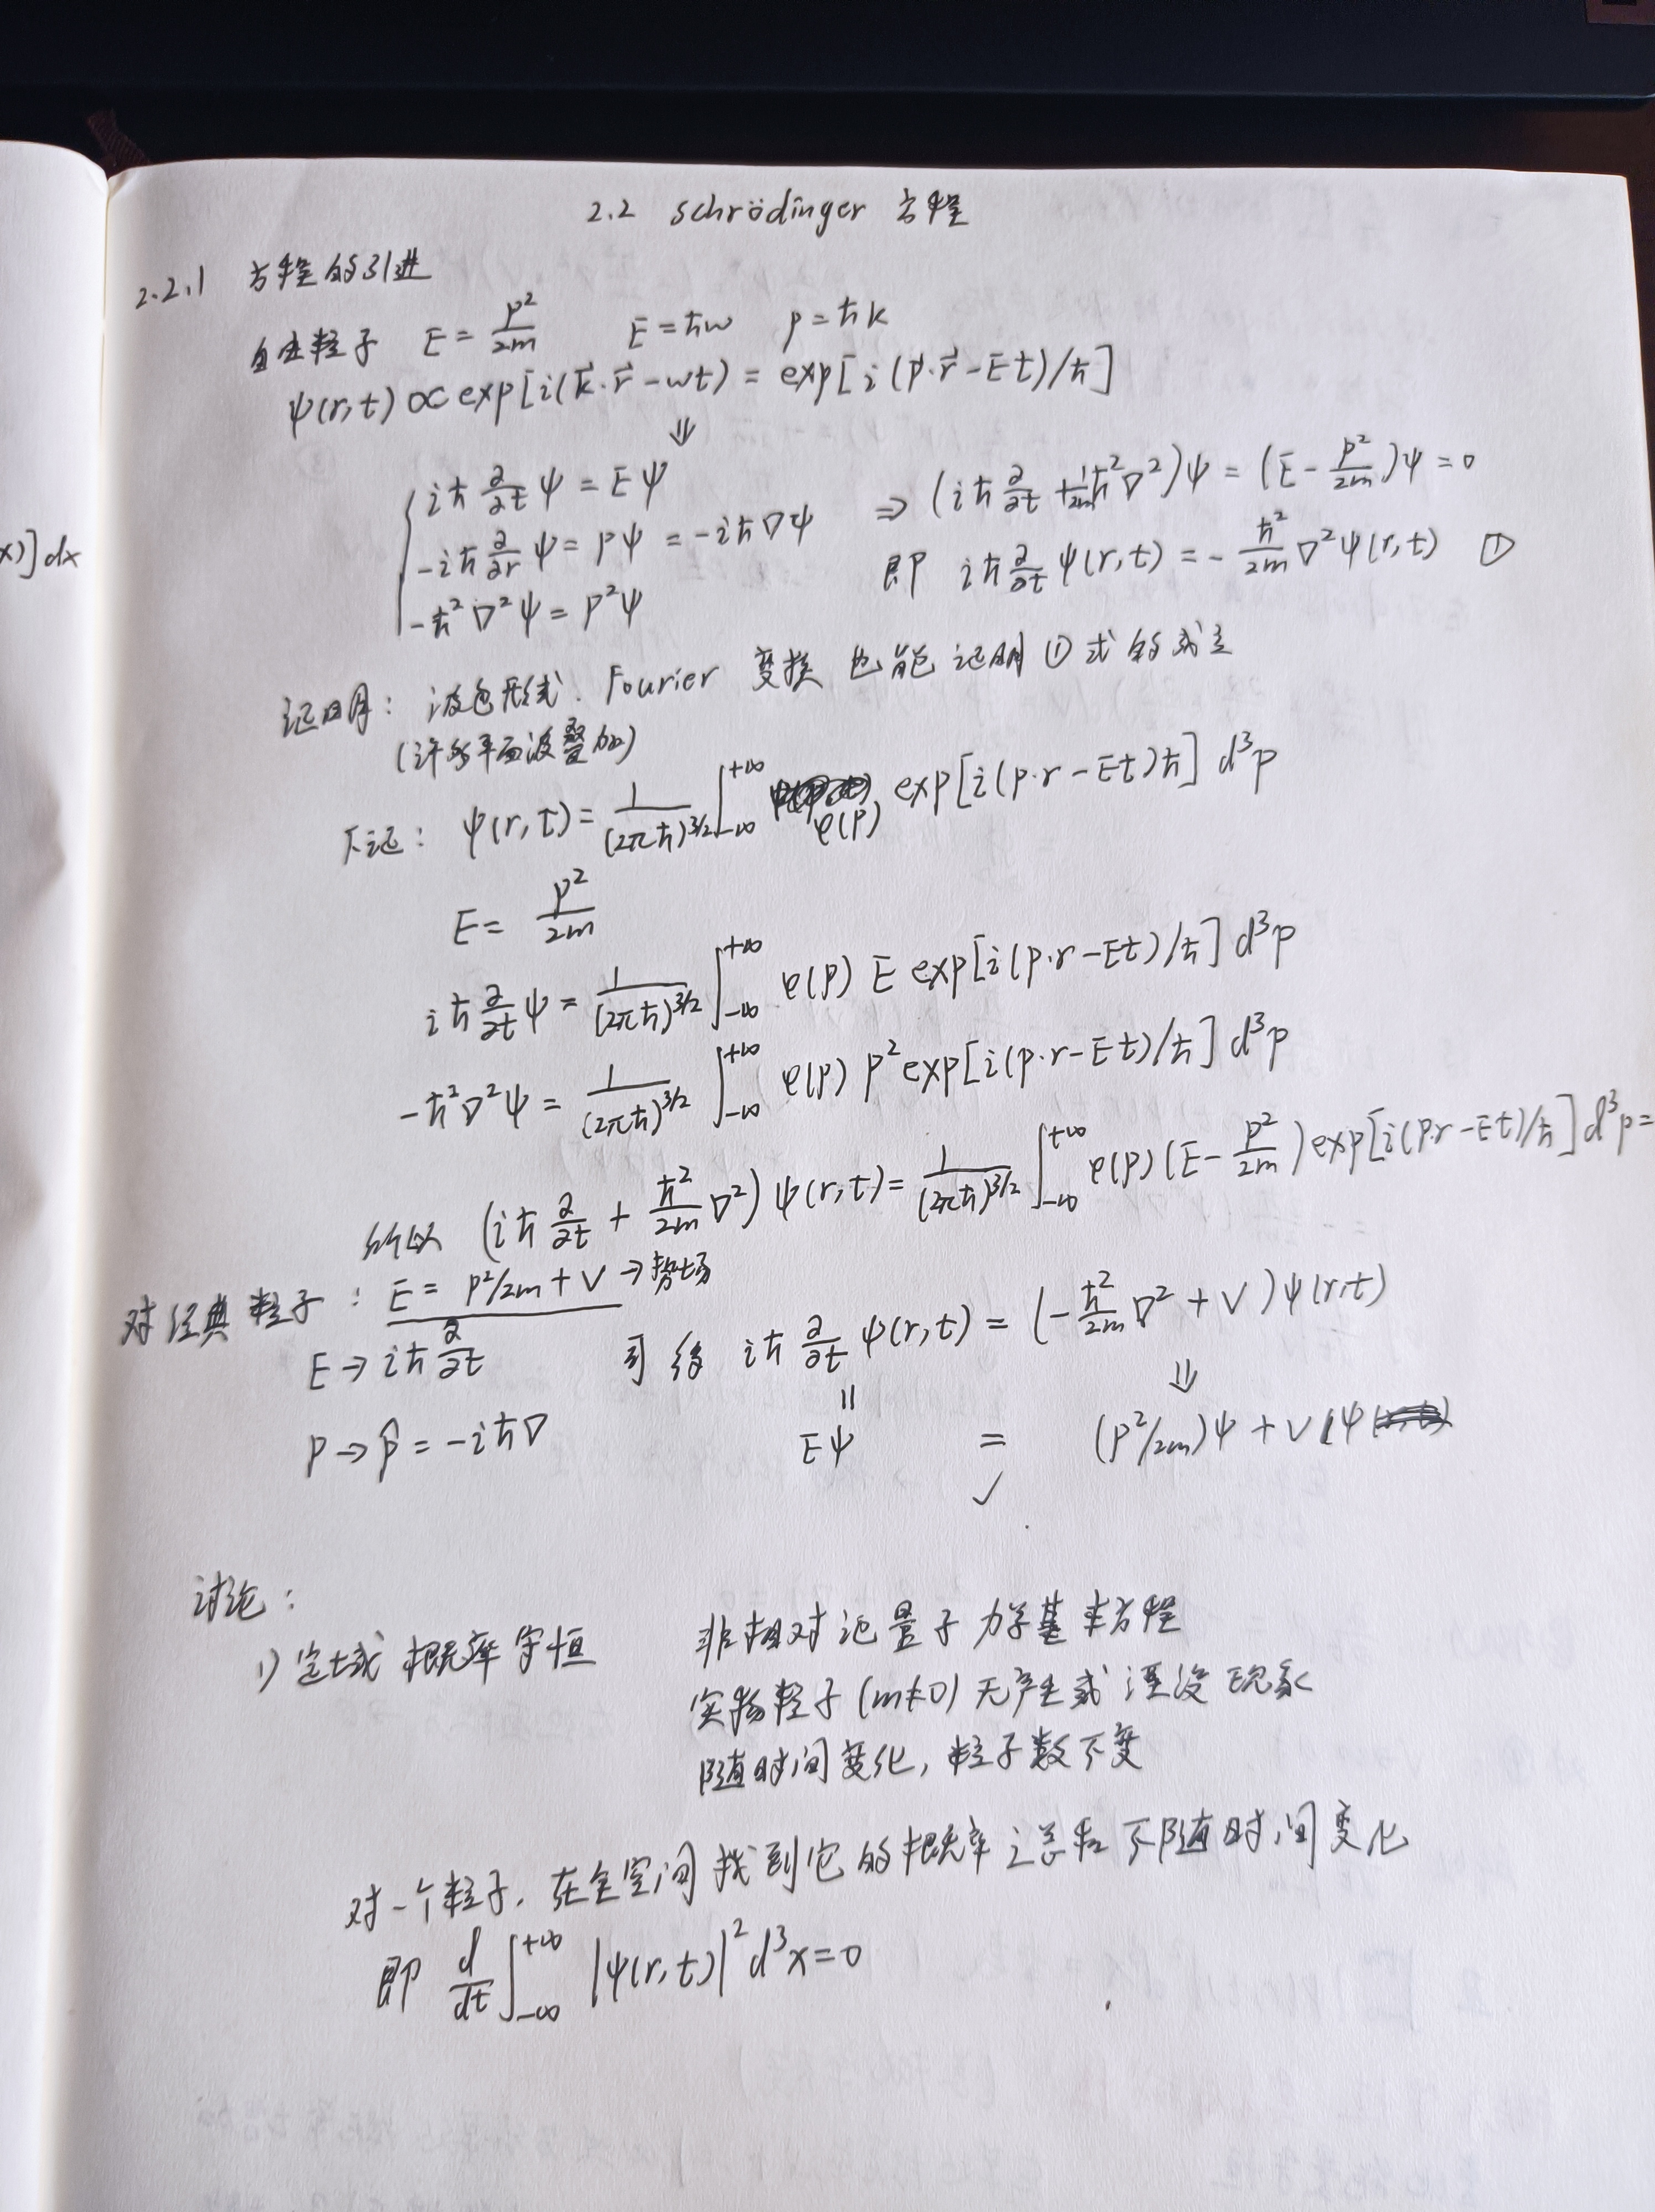 2.2 Schrödinger 方程
2.2.1 方程的引进
自由粒子 E = p²/2m E = ħw p = ħk
ψ(r,t) ∝ exp[i(k⃗·r⃗ - wt) = exp[i(p⃗·r⃗ - Et)/ħ]
⇓
iħ ∂/∂t ψ = Eψ
-iħ ∂/∂r ψ = pψ = -iħ∇ψ
-ħ²∇²ψ = p²ψ
⇒ (iħ ∂/∂t + 1/2m ħ²∇²)ψ = (E - p²/2m)ψ = 0
即 iħ ∂/∂t ψ(r,t) = - ħ²/2m ∇²ψ(r,t) ①
证明: 波包形式. Fourier 变换 也能证明 ① 式的成立
(许多平面波叠加)
下证: ψ(r,t) = 1/(2πħ)^3/2 ∫_-∞^+∞ φ(p) exp[i(p·r - Et)ħ] d³p
E = p²/2m
iħ ∂/∂t ψ = 1/(2πħ)^3/2 ∫_-∞^+∞ φ(p) E exp[i(p·r - Et)/ħ] d³p
-ħ²∇²ψ = 1/(2πħ)^3/2 ∫_-∞^+∞ φ(p) p² exp[i(p·r - Et)/ħ] d³p
所以 (iħ ∂/∂t + ħ²/2m ∇²) ψ(r,t) = 1/(2πħ)^3/2 ∫_-∞^+∞ φ(p) (E - p²/2m) exp[i(p·r - Et)/ħ] d³p =
对经典粒子: E = p²/2m + V → 势场
E → iħ ∂/∂t 可得 iħ ∂/∂t ψ(r,t) = (- ħ²/2m ∇² + V) ψ(r,t)
॥ ⇓
p → p̂ = -iħ∇ Eψ = (p²/2m)ψ + Vψ
✓
讨论:
1) 定域概率守恒 非相对论量子力学基本方程
实物粒子 (m≠0) 无产生或湮没现象
随时间变化, 粒子数不变
对一个粒子, 在全空间找到它的概率之总和不随时间变化
即 d/dt ∫_-∞^+∞ |ψ(r,t)|² d³x = 0
x)] dx